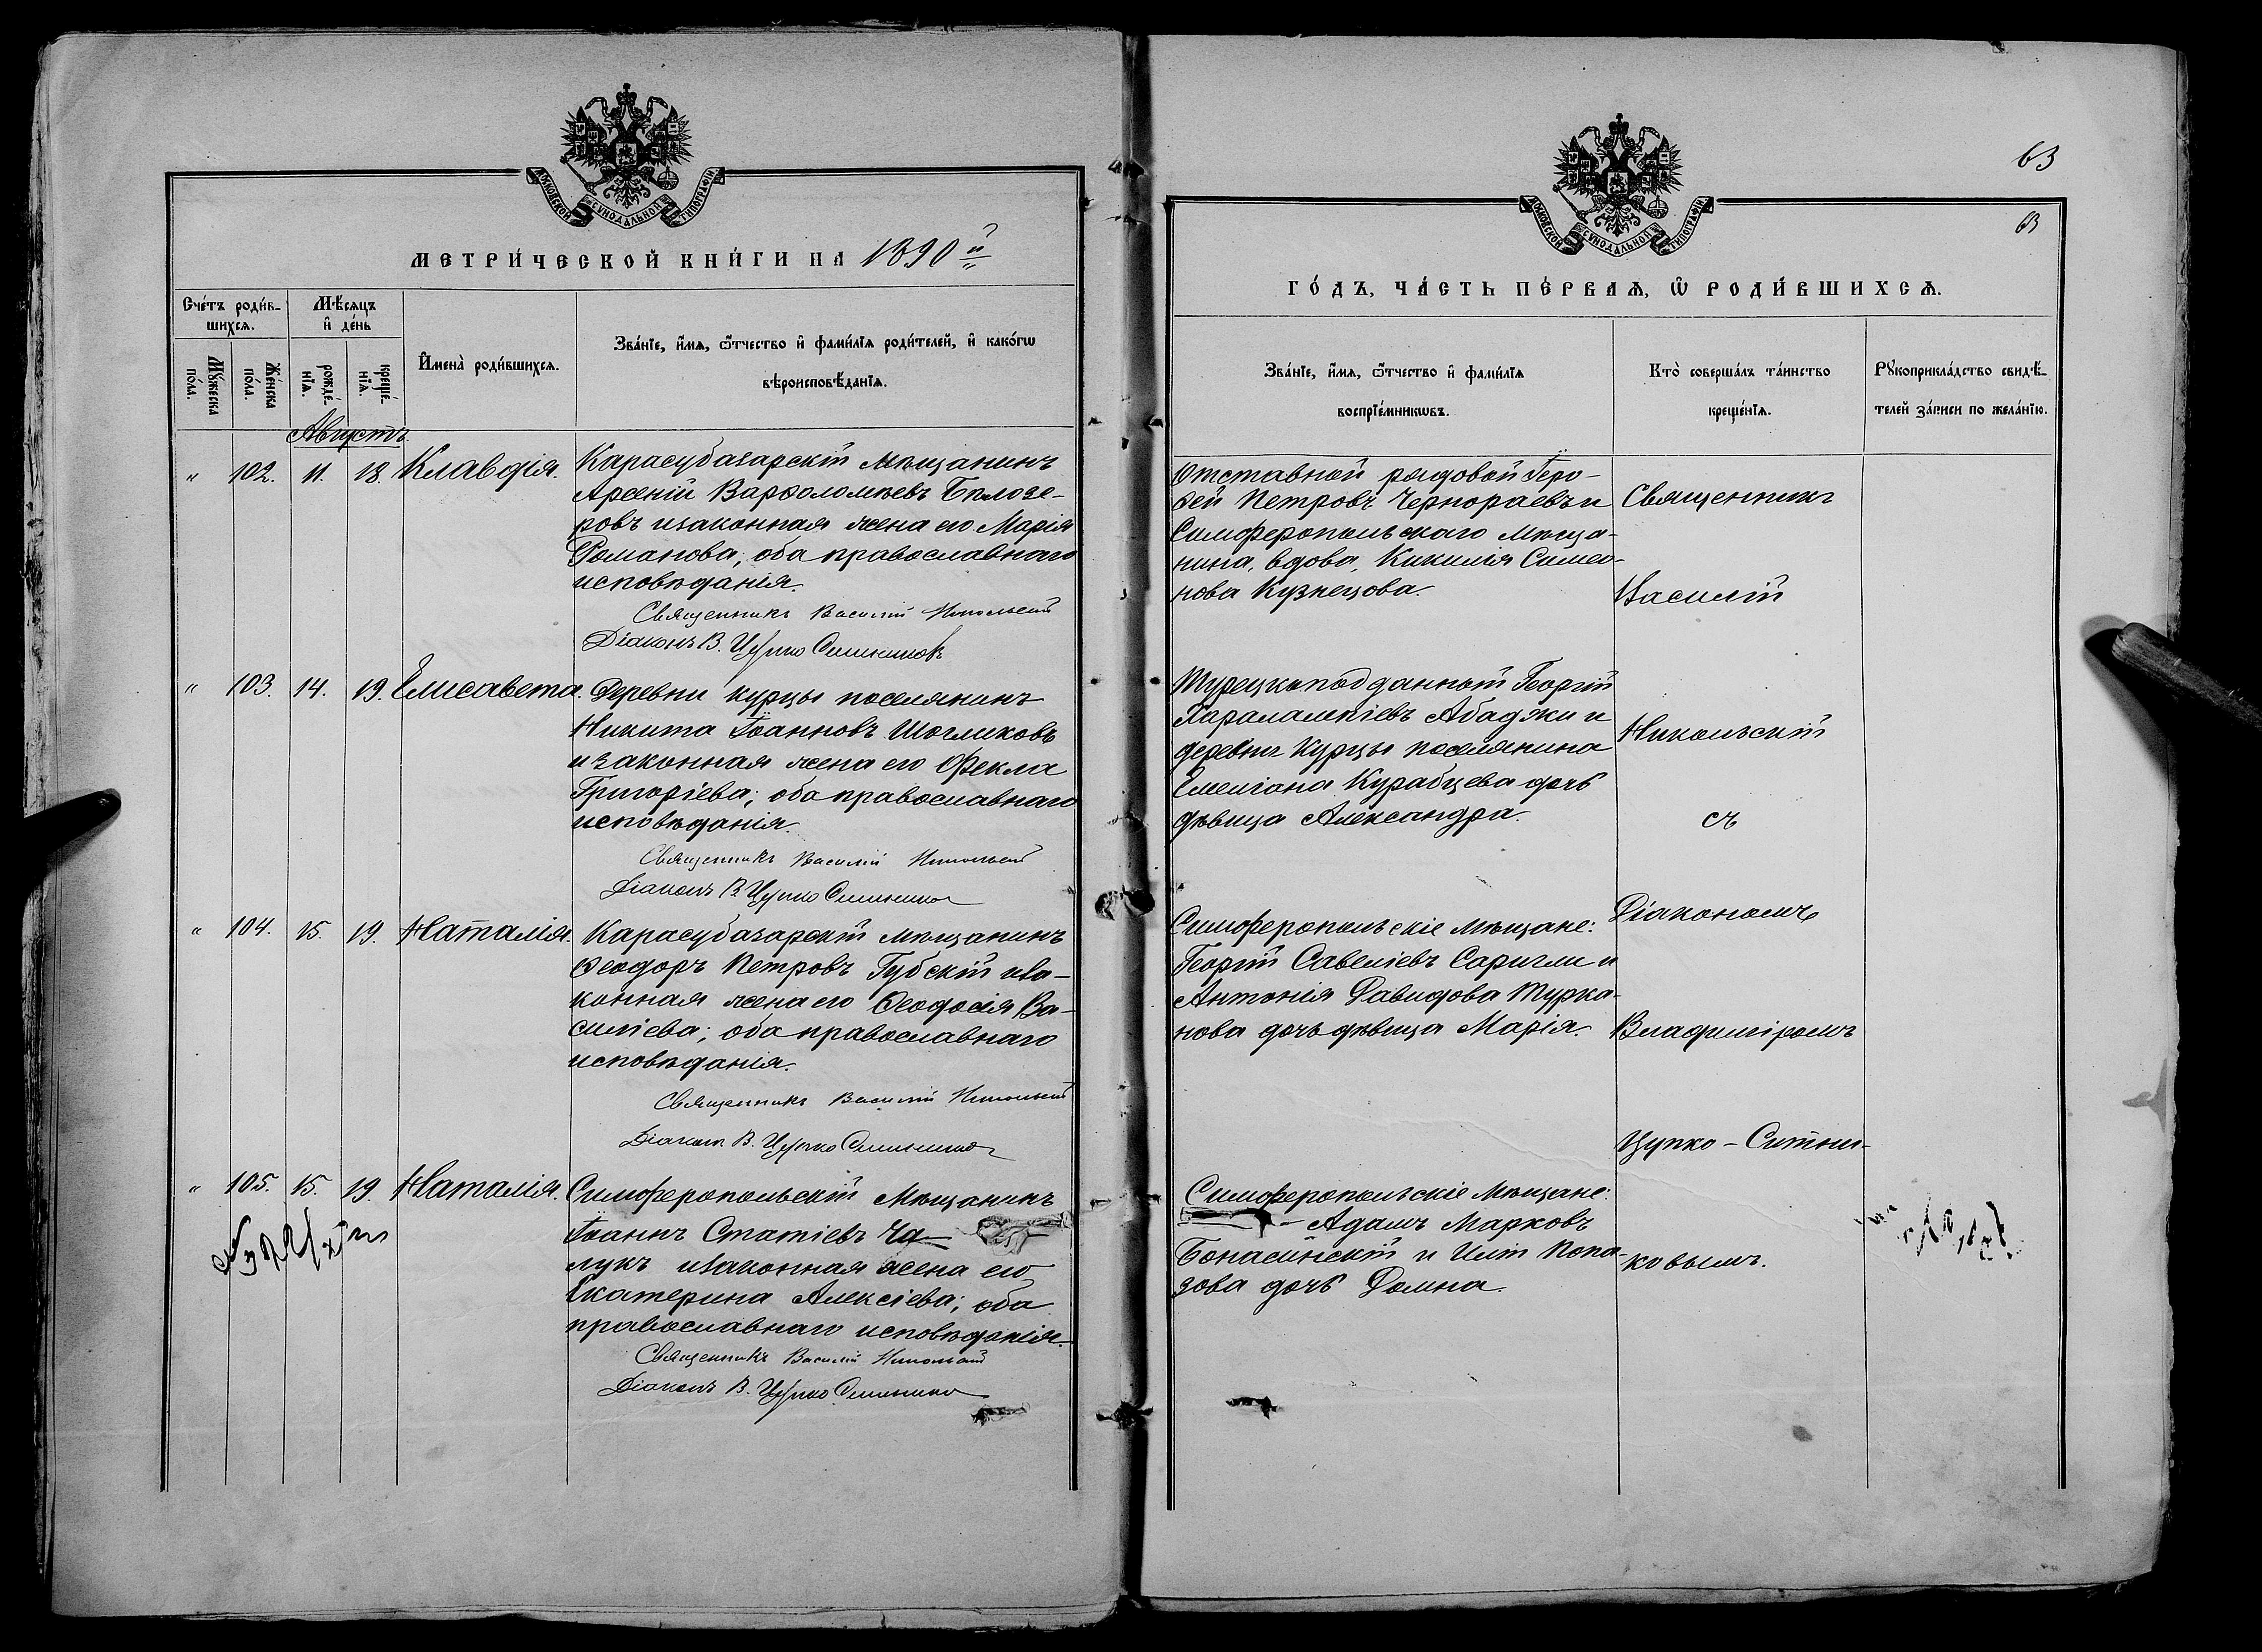 МОСКОВСКОЙ СУНОДАЛЬНОЙ ТИПОГРАФІИ
МЕТРИ́ЧЕСКОЙ КНИ́ГИ НА 1890 й
Сче́тъ роди́в-
шихсѧ.
Мѣ́сѧцъ
и҆ де́нь
Мꙋ́жеска
по́ла.
Же́нска
по́ла.
рожде́-
нїѧ.
креще́-
нїѧ.
И҆мена̀ роди́вшихсѧ.
Зва́нїе, и҆́мѧ, ѻ҆́тчество и҆ фами́лїѧ роди́телей, и҆ како́гѡ
вѣроисповѣ́данїѧ.
Августъ.
" 102. 11. 18. Клавдія.
Карасубазарскій мѣщанинъ
Арсеній Варѳоломѣевъ Бѣлозе-
ровъ и законная жена его Марія
Романова; оба православнаго
исповѣданія.
Священникъ Василій Никольскій
Діаконъ В. Цупко Ситников
" 103. 14. 19. Елисавета.
Деревни Курцы поселянинъ
Никита Іоанновъ Шогликовъ
и законная жена его Ѳекла
Григоріева; оба православнаго
исповѣданія.
Священникъ Василій Никольскій
Діаконъ В. Цупко Ситников
" 104. 15. 19. Наталія.
Карасубазарскій мѣщанинъ
Ѳеодоръ Петровъ Губскій и за-
конная жена его Ѳеодосія Ва-
силіева; оба православнаго
исповѣданія.
Священникъ Василій Никольскій
Діаконъ В. Цупко Ситников
" 105. 15. 19. Наталія.
Симферопольскій мѣщанинъ
Іоаннъ Статіевъ Ча-
лукъ и законная жена его
Екатерина Алексіева; оба
православнаго исповѣданія.
Священникъ Василій Никольскій
Діаконъ В. Цупко Ситников
63
63
МОСКОВСКОЙ СУНОДАЛЬНОЙ ТИПОГРАФІИ
ГО́ДЪ, ЧА́СТЬ ПЕ́РВАѦ, Ѡ҆ РОДИ́ВШИХСѦ.
Зва́нїе, и҆́мѧ, ѻ҆́тчество и҆ фами́лїѧ
воспрїе́мникѡвъ.
Кто̀ соверша́лъ та́инство
креще́нїѧ.
Рꙋкоприкла́дство свидѣ́-
телей за́писи по жела́нїю.
Отставной рядовой Геро-
вей Петровъ Чернораевъ и
Симферопольскаго мѣща-
нина, вдова, Кикилія Симео-
нова Кузнецова.
Турецкоподданный Георгій
Харалампіевъ Абаджи и
деревни Курцы поселянина
Емеліана Курабцева дочь
дѣвица Александра.
Симферопольскіе мѣщане:
Георгій Савеліевъ Саригли и
Антонія Давидова Турка-
нова дочь дѣвица Марія.
Симферопольскіе мѣщане:
Адамъ Марковъ
Бонасинскій и Иліи Попа-
зова дочь Домна.
Священникъ
Василій
Никольскій
съ
Діакономъ
Владиміромъ
Цупко-Ситни-
ковымъ.